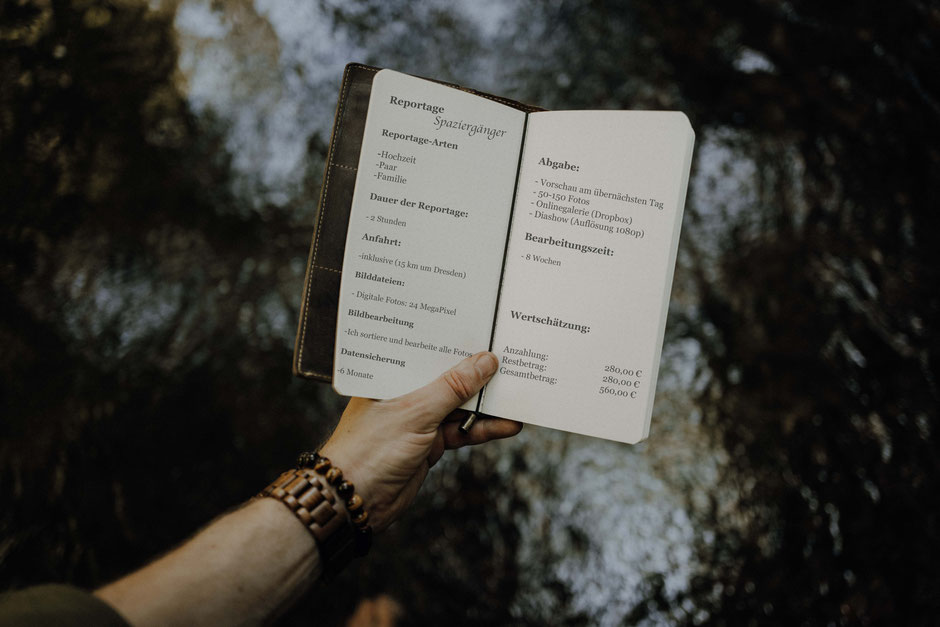 Reportage
Spaziergänger
Reportage-Arten
-Hochzeit
-Paar
-Familie
Dauer der Reportage:
- 2 Stunden
Anfahrt:
-inklusive (15 km um Dresden)
Bilddateien:
- Digitale Fotos: 24 MegaPixel
Bildbearbeitung
-Ich sortiere und bearbeite alle Fotos
Datensicherung
-6 Monate
Abgabe:
- Vorschau am übernächsten Tag
- 50-150 Fotos
- Onlinegalerie (Dropbox)
- Diashow (Auflösung 1080p)
Bearbeitungszeit:
- 8 Wochen
Wertschätzung:
Anzahlung: 280,00 €
Restbetrag: 280,00 €
Gesamtbetrag: 560,00 €